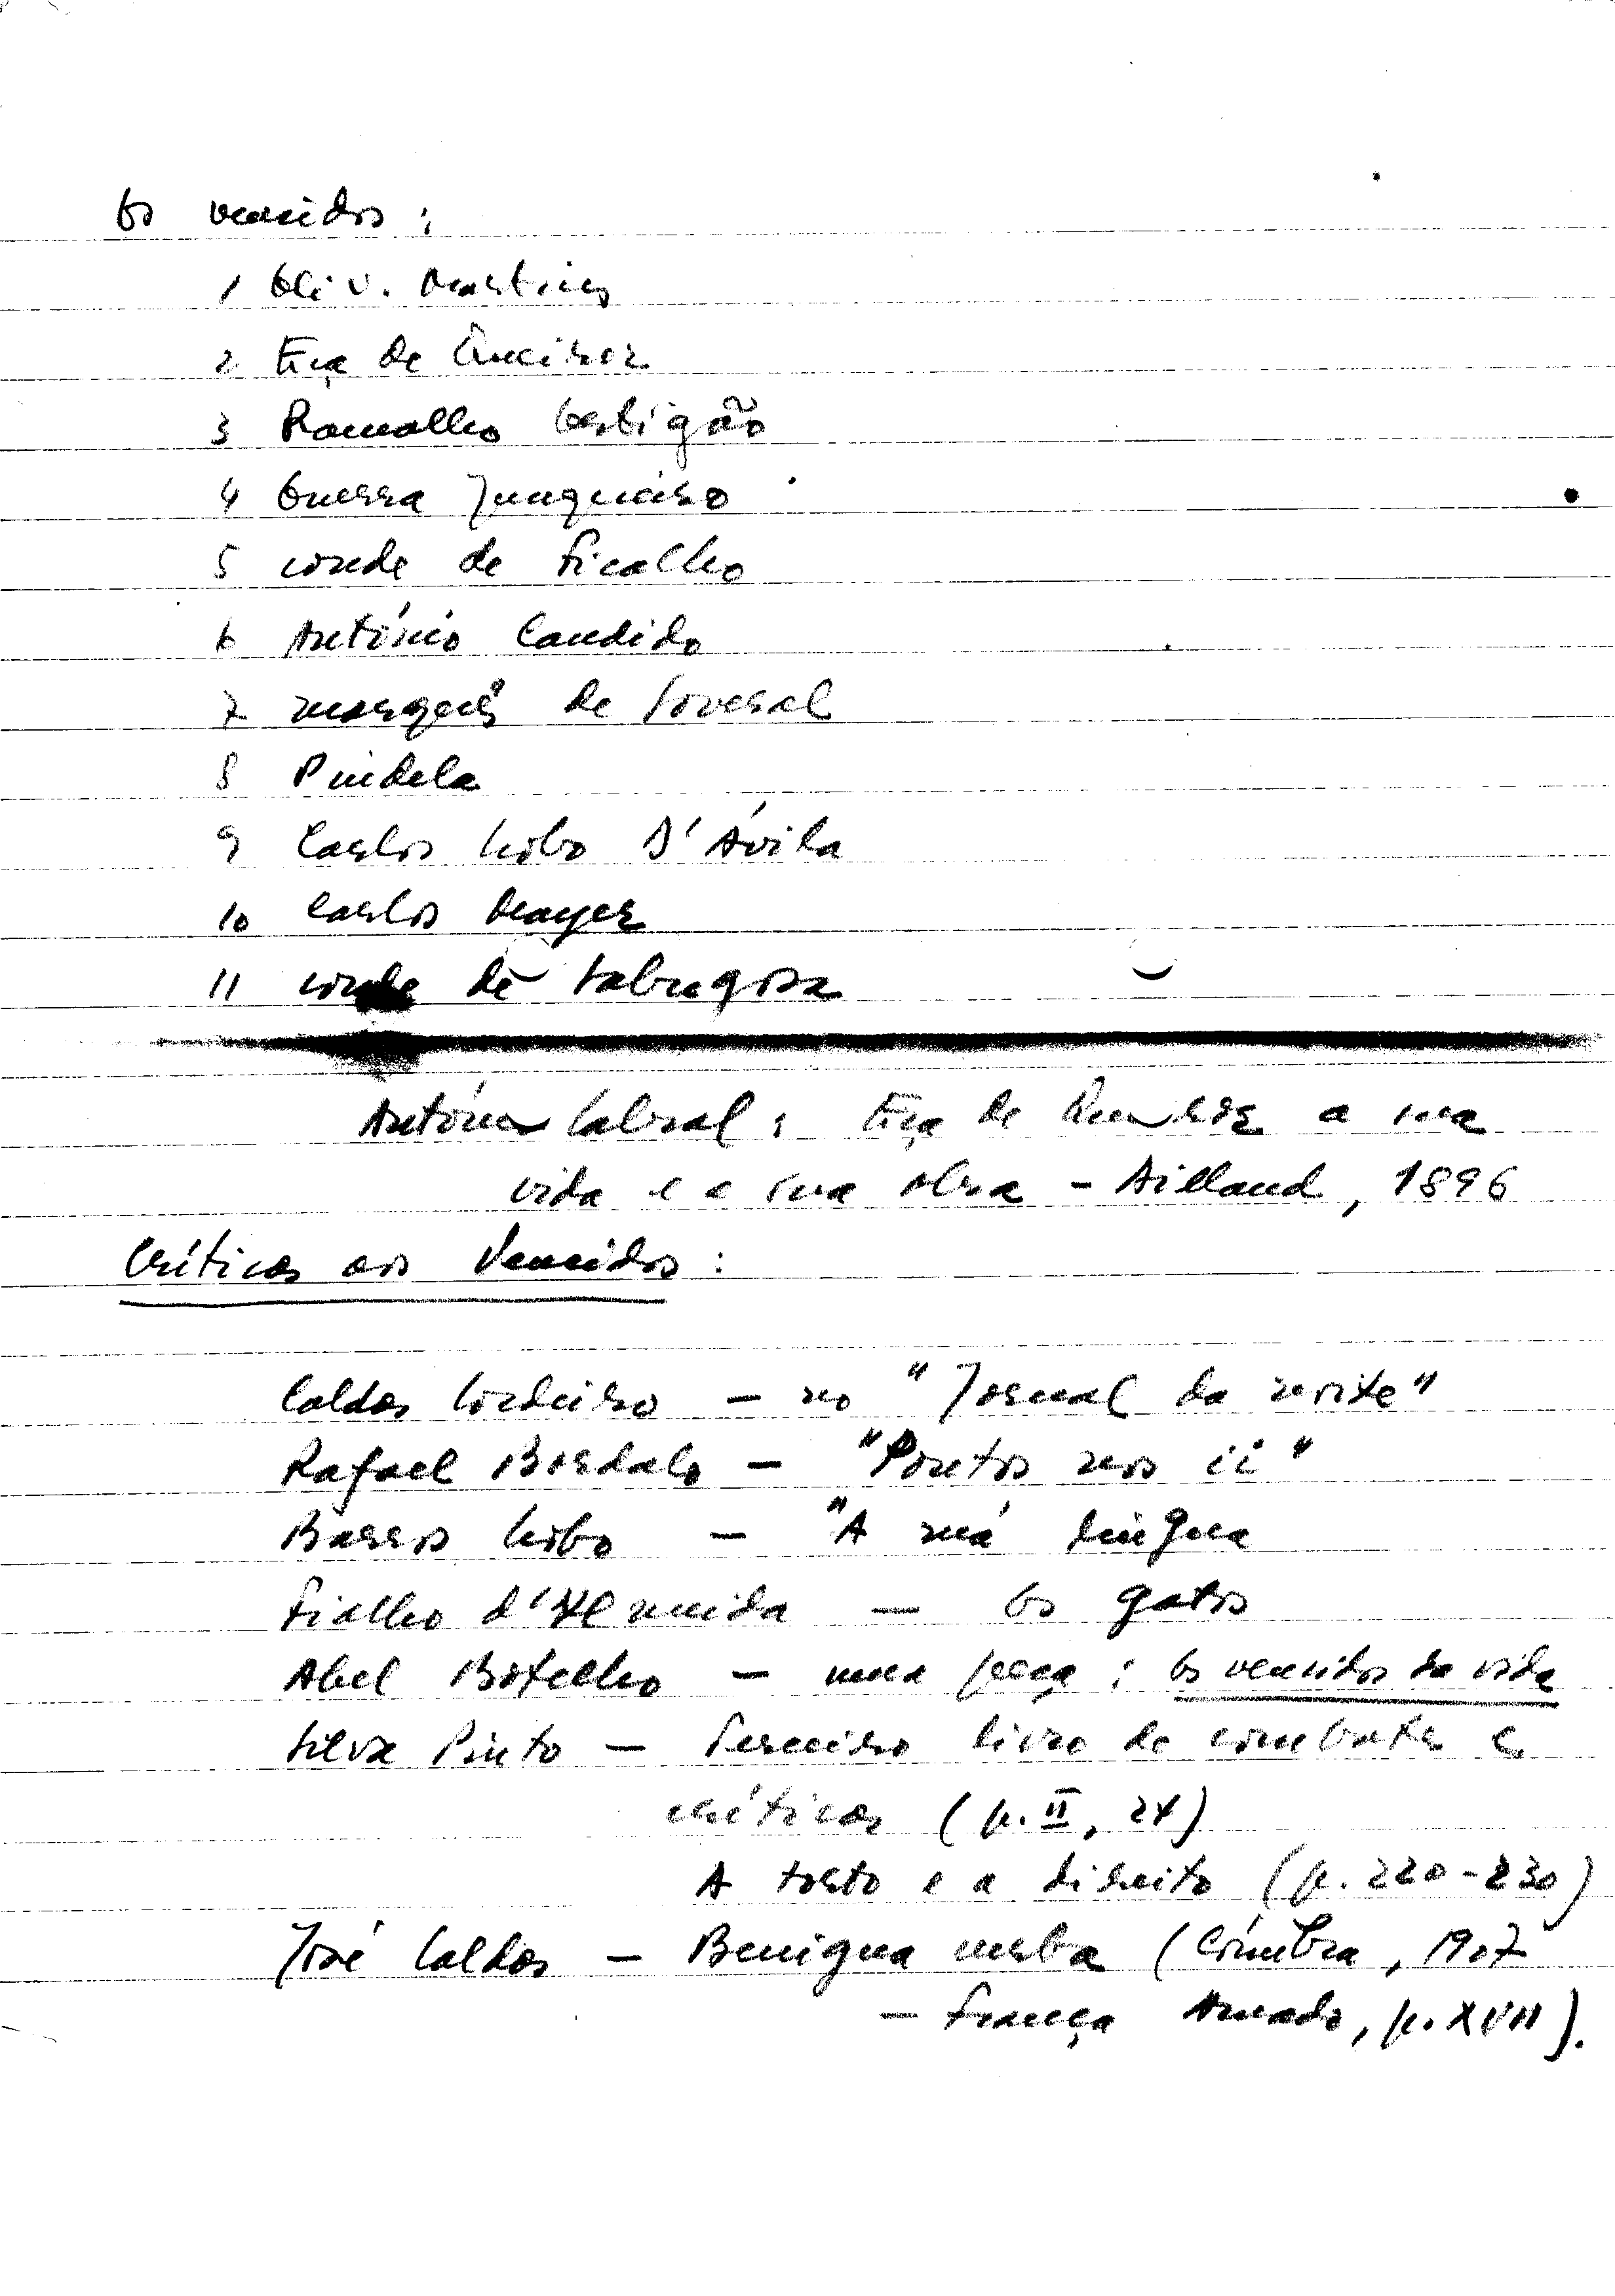 Os vencidos :
1 Oliv. Martins
2 Eça de Queiroz
3 Ramalho Ortigão
4 Guerra Junqueiro
5 conde de Ficalho
6 António Candido
7 marquês de Soveral
8 Pindela
9 Carlos Lobo D'Ávila
10 Carlos Mayer
11 conde de Sabugosa
António Cabral : Eça de Queiroz a sua
vida e a sua obra - Ailland, 1896
Críticas aos Vencidos :
Caldas Cordeiro - no "Jornal da noite"
Rafael Bordalo - "Pontos nos ii"
Barros Lobo - "A má língua
Fialho d'Almeida - Os gatos
Abel Botelho - uma peça : Os vencidos da vida
Silva Pinto - Terceiro livro de combates e
críticas (p. II, 24)
A torto e a direito (p. 220-230)
José Caldas - Benigna verba (Coímbra, 1907
- França Amado, p. XVII).